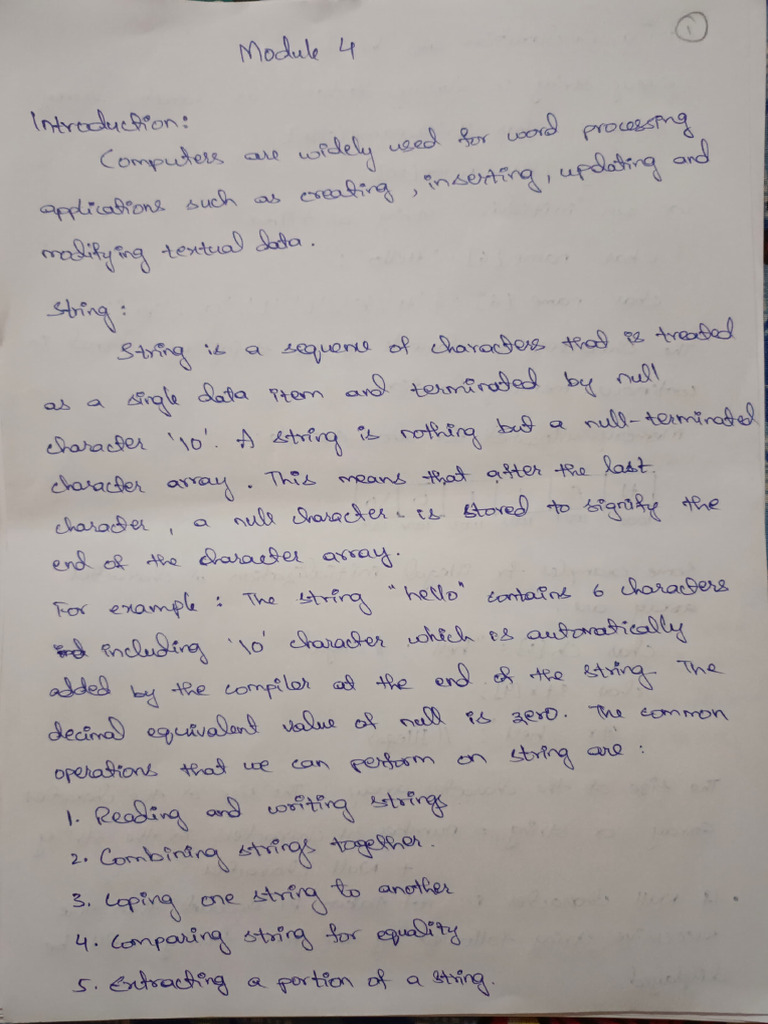 1
Module 4
Introduction:
Computers are widely used for word processing
applications such as creating, inserting, updating and
modifying textual data.
String:
String is a sequence of characters that is treated
as a single data item and terminated by null
character '\0'. A string is nothing but a null-terminated
character array. This means that after the last
character, a null character is stored to signify the
end of the character array.
For example: The string "hello" contains 6 characters
including '\0' character which is automatically
added by the compiler at the end of the string. The
decimal equivalent value of null is zero. The common
operations that we can perform on string are:
1. Reading and writing strings
2. Combining strings together.
3. Coping one string to another
4. Comparing string for equality
5. Extracting a portion of a string.